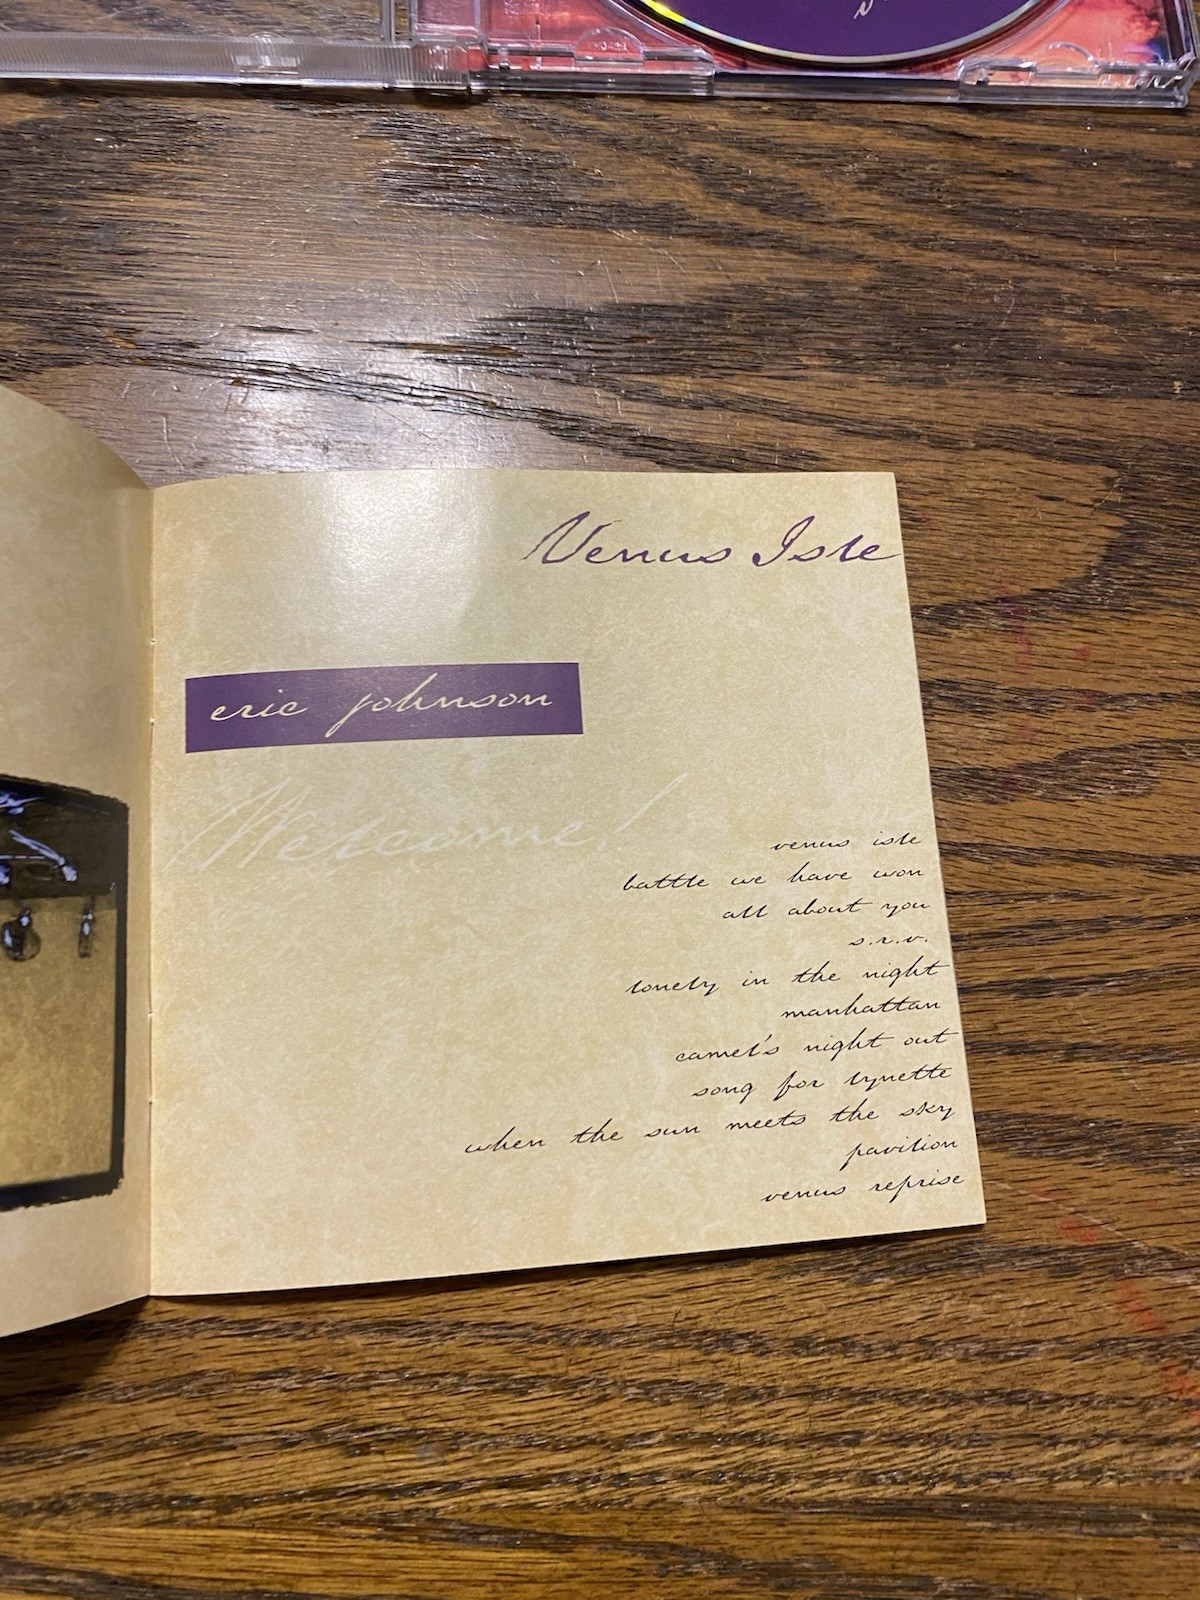 Venus Isle
eric johnson
Welcome!
venus isle
battle we have won
all about you
s.r.v.
lonely in the night
manhattan
camel's night out
song for lynette
when the sun meets the sky
pavilion
venus reprise